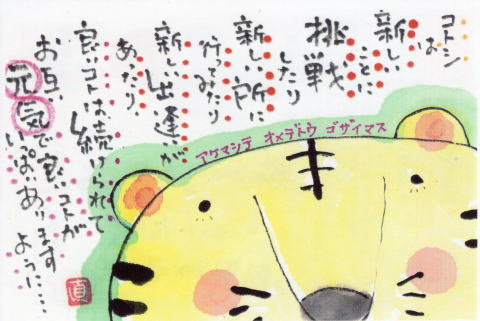 コトシは
新しいことに
挑戦
したり
新しい所に
行ってみたり
新しい出逢いが
あったり、
良いコトは続けられて
お互い
元気で良いコトが
いっぱいあります
ように…
アケマシテ オメデトウ ゴザイマス
直